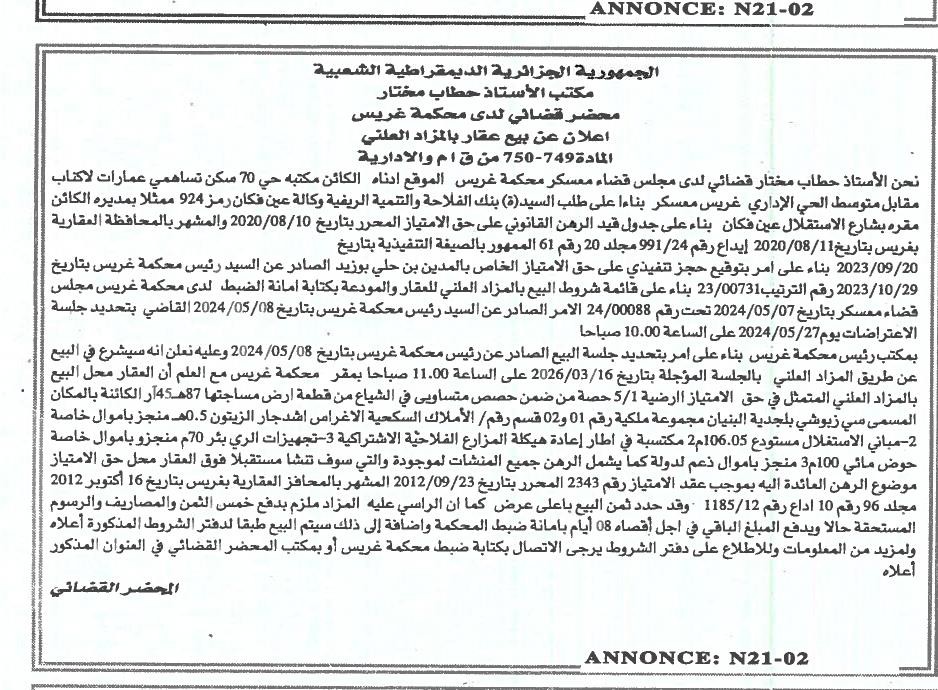 ANNONCE: N21-02
الجمهورية الجزائرية الديمقراطية الشعبية
مكتب الأستاذ حطاب مختار
محضر قضائي لدى محكمة غريس
اعلان عن بيع عقار بالمزاد العلني
المادة 749-750 من ق ا م والادارية
نحن الأستاذ حطاب مختار قضائي لدى مجلس قضاء معسكر محكمة غريس الموقع ادناه الكائن مكتبه حي 70 سكن تساهمي عمارات لاكناب
مقابل متوسط الحي الإداري غريس معسكر بناءا على طلب السيد(ة) بنك الفلاحة والتنمية الريفية وكالة عين فكان رمز 924 ممثلا بمديره الكائن
مقره بشارع الاستقلال عين فكان بناء على جدول قيد الرهن القانوني على حق الامتياز المحرر بتاريخ 2020/08/10 والمشهر بالمحافظة العقارية
بغريس بتاريخ 2020/08/11 إيداع رقم 991/24 مجلد 20 رقم 61 الممهور بالصيغة التنفيذية بتاريخ
2023/09/20 بناء على امر بتوقيع حجز تنفيذي على حق الامتياز الخاص بالمدين بن حلي بوزيد الصادر عن السيد رئيس محكمة غريس بتاريخ
2023/10/29 رقم الترتيب 23/00731 بناء على قائمة شروط البيع بالمزاد العلني للعقار والمودعة بكتابة امانة الضبط لدى محكمة غريس مجلس
قضاء معسكر بتاريخ 2024/05/07 تحت رقم 24/00088 الامر الصادر عن السيد رئيس محكمة غريس بتاريخ 2024/05/08 القاضي بتحديد جلسة
الاعتراضات يوم 2024/05/27 على الساعة 10.00 صباحا
بمكتب رئيس محكمة غريس بناء على امر بتحديد جلسة البيع الصادر عن رئيس محكمة غريس بتاريخ 2024/05/08 وعليه نعلن انه سيشرع في البيع
عن طريق المزاد العلني بالجلسة المؤجلة بتاريخ 2026/03/16 على الساعة 11.00 صباحا بمقر محكمة غريس مع العلم أن العقار محل البيع
بالمزاد العلني المتمثل في حق الامتياز الارضية 5/1 حصة من ضمن حصص متساوي في الشياع من قطعة ارض مساحتها 87هـ 45آر الكائنة بالمكان
المسمى سي زيوشي بلجدية البنيان مجموعة ملكية رقم 01 و02 قسم رقم/ الأملاك السكحية الاغراس اشدجار الزيتون 0.5هـ منجز باموال خاصة
2-مباني الاستغلال مستودع 106.05م2 مكتسبة في اطار إعادة هيكلة المزارع الفلاحية الاشتراكية 3-تجهيزات الري بئر 70م منجزو باموال خاصة
حوض مائي 100م3 منجز باموال ذعم لدولة كما يشمل الرهن جميع المنشات لموجودة والتي سوف تنشا مستقبلا فوق العقار محل حق الامتياز
موضوع الرهن العائدة اليه بموجب عقد الامتياز رقم 2343 المحرر بتاريخ 2012/09/23 المشهر بالمحافز العقارية بغريس بتاريخ 16 أكتوبر 2012
مجلد 96 رقم 10 اداع رقم 1185/12 وقد حدد ثمن البيع باعلى عرض كما ان الراسي عليه المزاد ملزم بدفع خمس الثمن والمصاريف والرسوم
المستحقة حالا ويدفع المبلغ الباقي في اجل أقصاه 08 أيام بامانة ضبط المحكمة واضافة إلى ذلك سيتم البيع طبقا لدفتر الشروط المذكورة أعلاه
ولمزيد من المعلومات وللاطلاع على دفتر الشروط يرجى الاتصال بكتابة ضبط محكمة غريس أو بمكتب المحضر القضائي في العنوان المذكور
أعلاه
المحضر القضائي
ANNONCE: N21-02